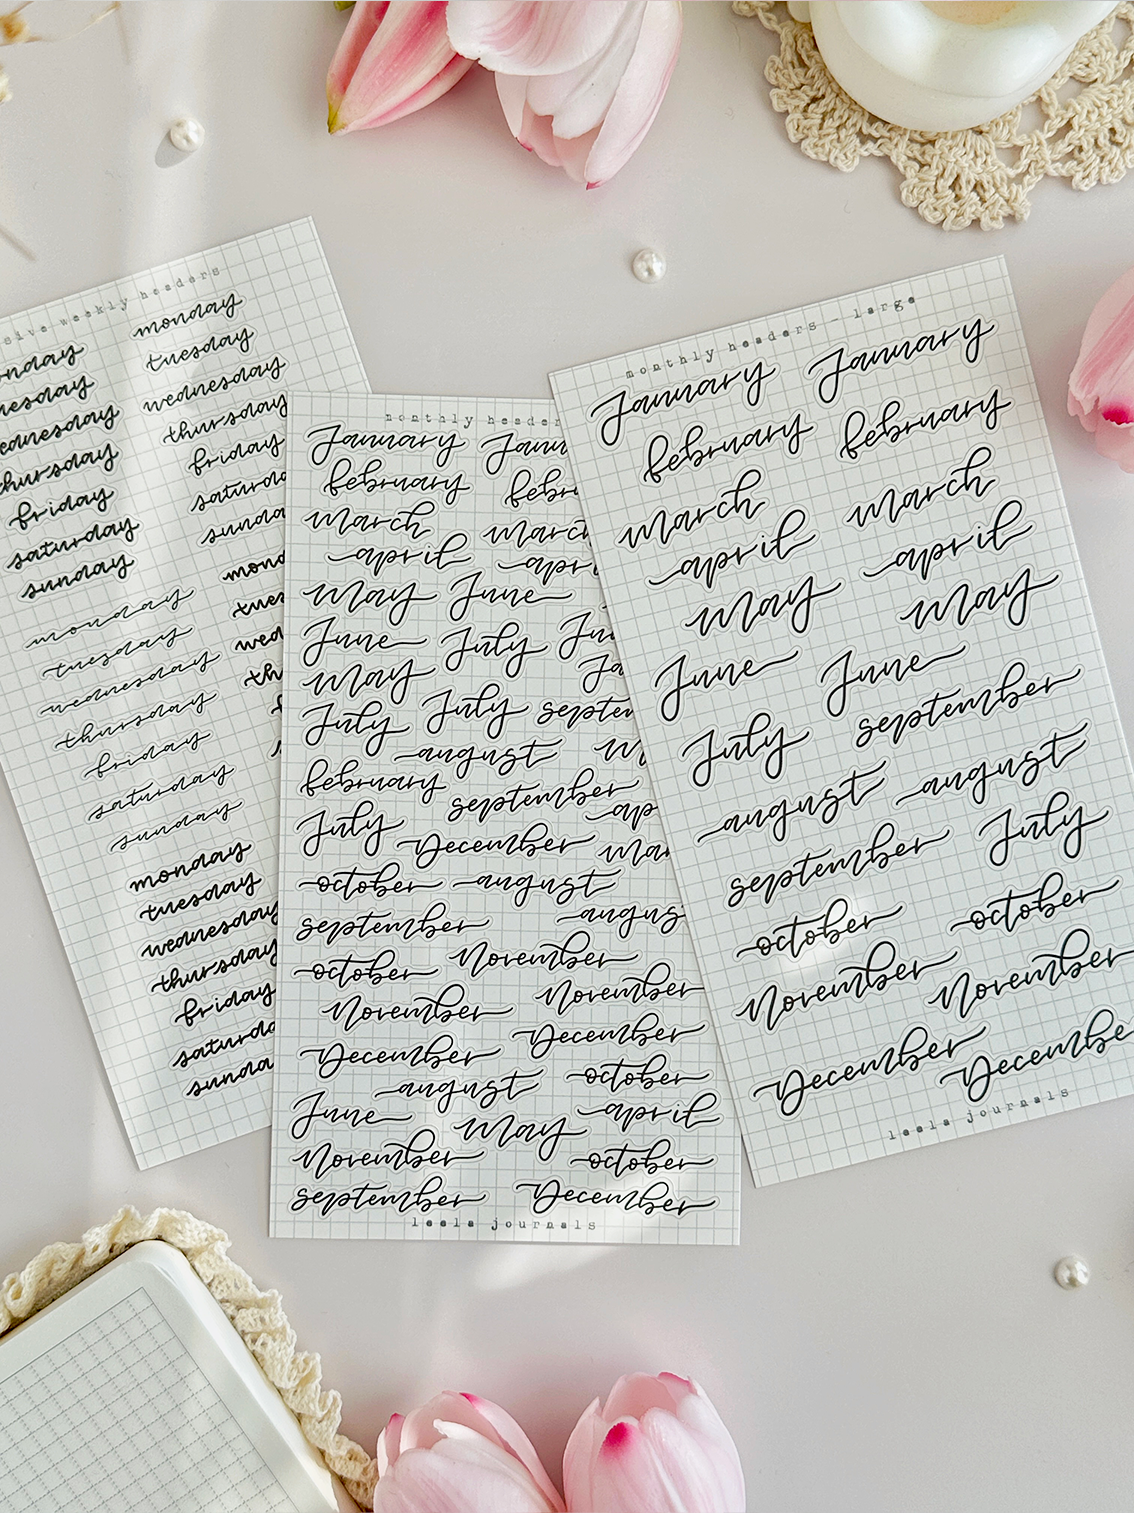 weekly headers
monday
tuesday
wednesday
thursday
friday
saturday
sunday
monday
tuesday
wednesday
thursday
friday
monday
tuesday
wednesday
thursday
friday
saturday
sunday
monday
tuesday
wednesday
thursday
friday
monthly header
January
february
march
april
May June
June July
May
July July
august
february september
July December
october august
september
october November
November November
December December
august october
June May april
November october
september December
leela journals
monthly headers - large
January January
february february
march march
april april
May May
June June
July september
august august
september July
october october
November November
December
leela journals